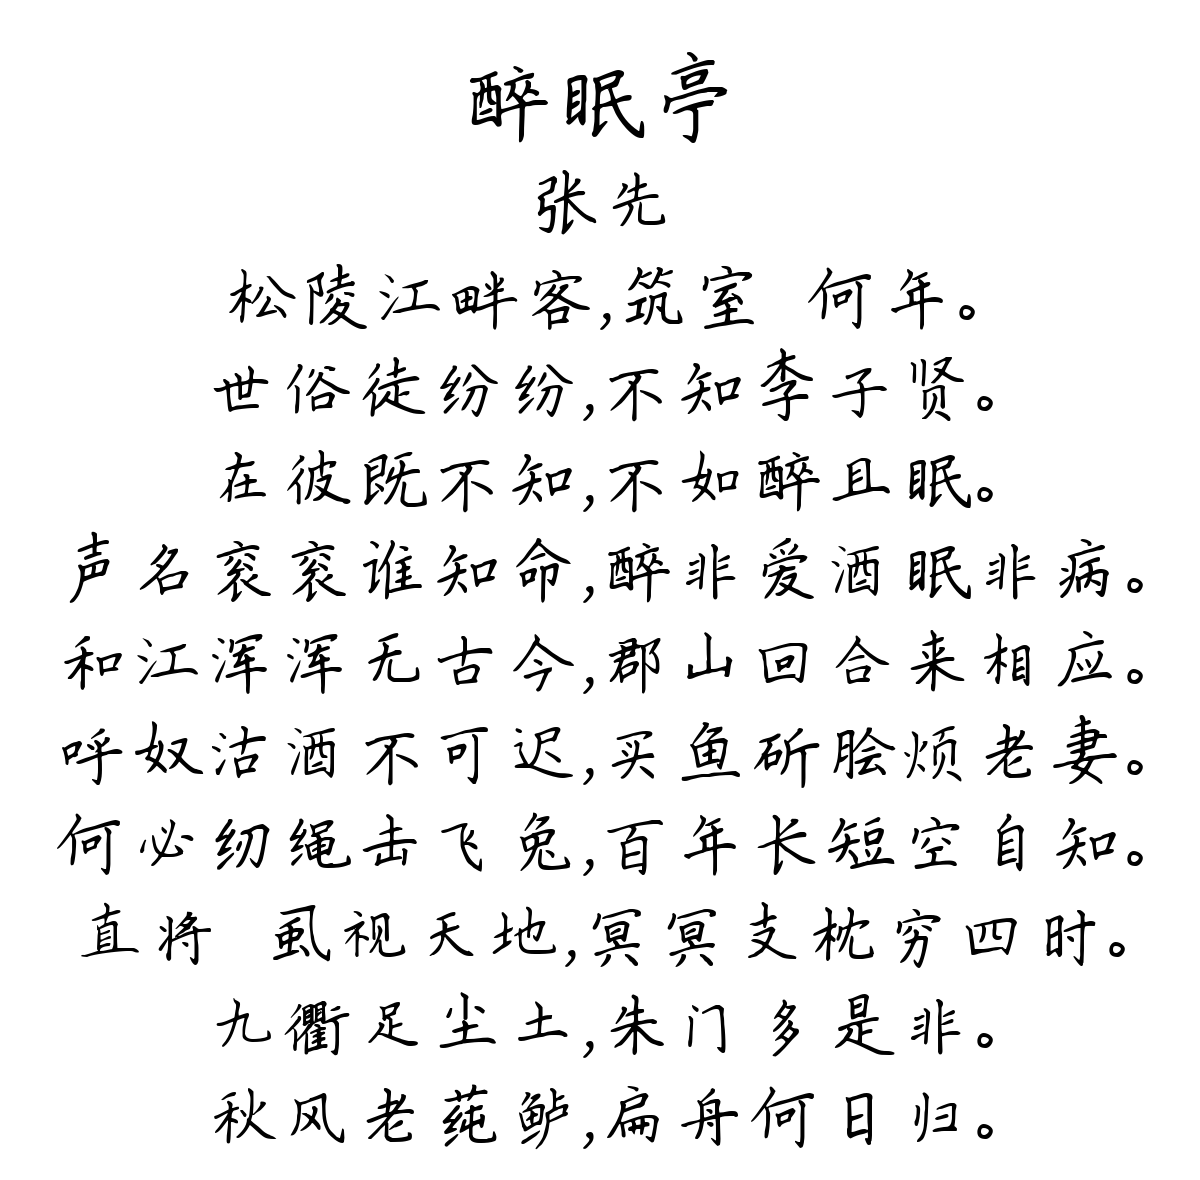 醉眠亭
张先
松陵江畔客,筑室 何年。
世俗徒纷纷,不知李子贤。
在彼既不知,不如醉且眠。
声名衮衮谁知命,醉非爱酒眠非病。
和江浑浑无古今,郡山回合来相应。
呼奴沽酒不可迟,买鱼斫脍烦老妻。
何必纫绳击飞兔,百年长短空自知。
直将 虱视天地,冥冥支枕穷四时。
九衢足尘土,朱门多是非。
秋风老莼鲈,扁舟何日归。